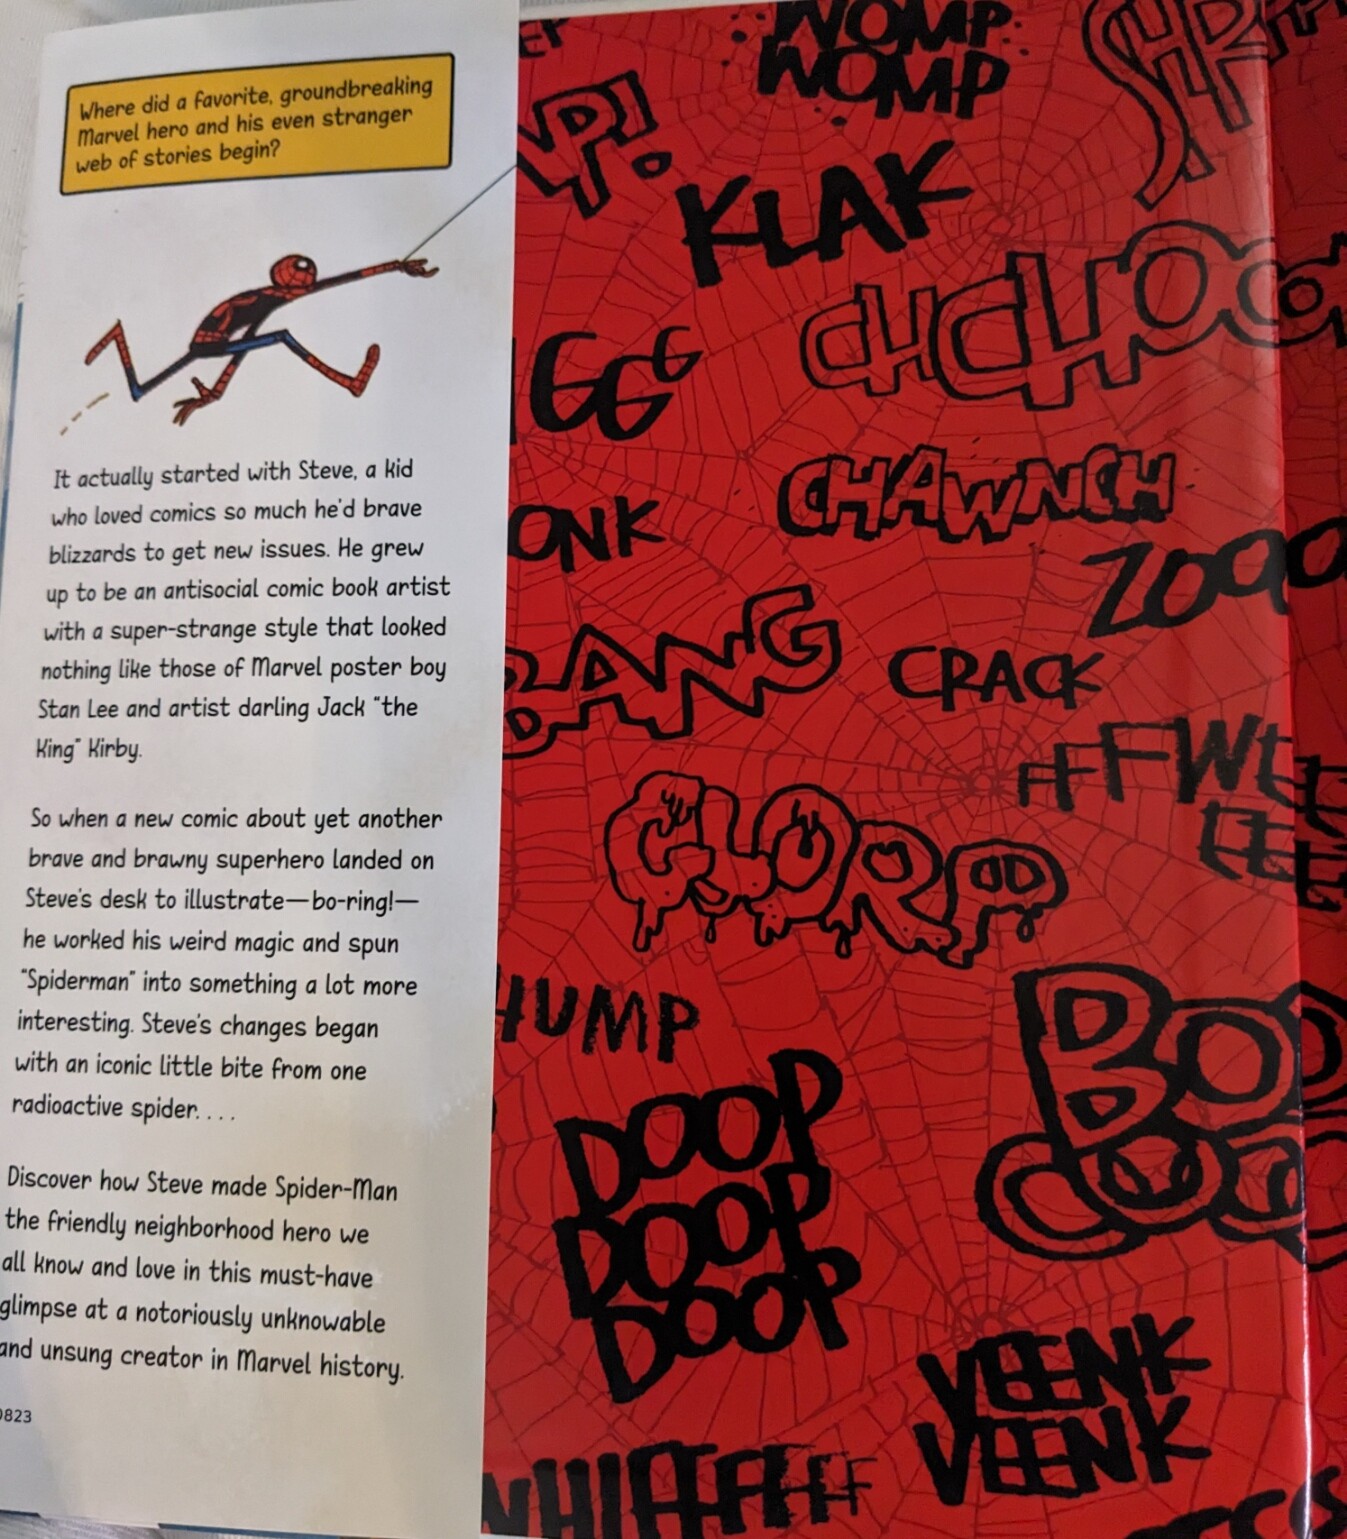 Where did a favorite, groundbreaking
Marvel hero and his even stranger
web of stories begin?
It actually started with Steve, a kid
who loved comics so much he'd brave
blizzards to get new issues. He grew
up to be an antisocial comic book artist
with a super-strange style that looked
nothing like those of Marvel poster boy
Stan Lee and artist darling Jack "the
King" Kirby.
So when a new comic about yet another
brave and brawny superhero landed on
Steve's desk to illustrate—bo-ring!—
he worked his weird magic and spun
"Spiderman" into something a lot more
interesting. Steve's changes began
with an iconic little bite from one
radioactive spider. . . .
Discover how Steve made Spider-Man
the friendly neighborhood hero we
all know and love in this must-have
glimpse at a notoriously unknowable
and unsung creator in Marvel history.
0823
WOMP
WOMP
KLAK
CHCHOO
CHAWNCH
ONK
ZOOO
BANG
CRACK
FFFWEE
EEE
GLORP
HUMP
DOOP
DOOP
DOOP
VEENK
VEENK
WHIFFFFFF